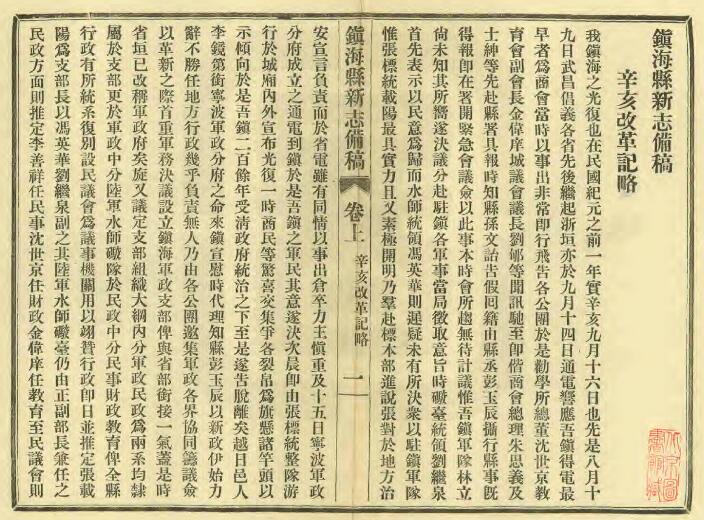 鎭海縣新志備稿
辛亥改革記略
我鎭海之光復也在民國紀元之前一年實辛亥九月十六日也先是八月十
九日武昌倡義各省先後繼起浙垣亦於九月十四日通電響應吾鎭得電最
早者爲商會當時以事出非常即行飛告各公團於是勸學所總董沈世京教
育會副會長金偉庠城議會議長劉郇等聞訊馳至即偕商會總理朱思義及
士紳等先赴縣署具報時知縣孫文詒告假回籍由縣丞彭玉辰攝行縣事旣
得報即在署開緊急會議僉以此事本時會所趨無待計議惟吾鎭軍隊林立
尙未知其所嚮遂決議分赴駐鎭各軍事當局徵取意旨時礮臺統領劉繼泉
首先表示以民意爲歸而水師統領馮英華則遲疑未有所決衆以駐鎭軍隊
惟張標統載陽最具實力且又素極開明乃羣赴標本部進說張對於地方治
鎭海縣新志備稿
卷上
辛亥改革記略
一
安宣言負責而於省電雖有同情以事出倉卒力主愼重及十五日寧波軍政
分府成立之通電到鎭於是吾鎭之軍民其意遂決次晨卽由張標統整隊游
行於城廂內外宣布光復一時商民等驚喜交集爭各裂帛爲旗懸諸竿頭以
示傾向於是吾鎭二百餘年受淸政府統治之下至是遂告脫離矣越日邑人
李鏡第銜寧波軍政分府之命來鎭宣慰時代理知縣彭玉辰以新政伊始力
辭不勝任地方行政幾乎負責無人乃由各公團邀集軍政各界協同籌議僉
以革新之際首重軍務決議設立鎭海軍政支部俾與省部銜接一氣蓋是時
省垣已改稱軍政府矣旋又議定支部組織大綱內分軍政民政爲兩系均隸
屬於支部更於軍政中分陸軍水師礮隊於民政中分民事財政教育俾全縣
行政有所統系復別設民議會爲議事機關用以翊贊行政卽日並推定張載
陽爲支部長以馮英華劉繼泉副之其陸軍水師礮臺仍由正副部長兼任之
民政方面則推定李善祥任民事沈世京任財政金偉庠任教育至民議會則